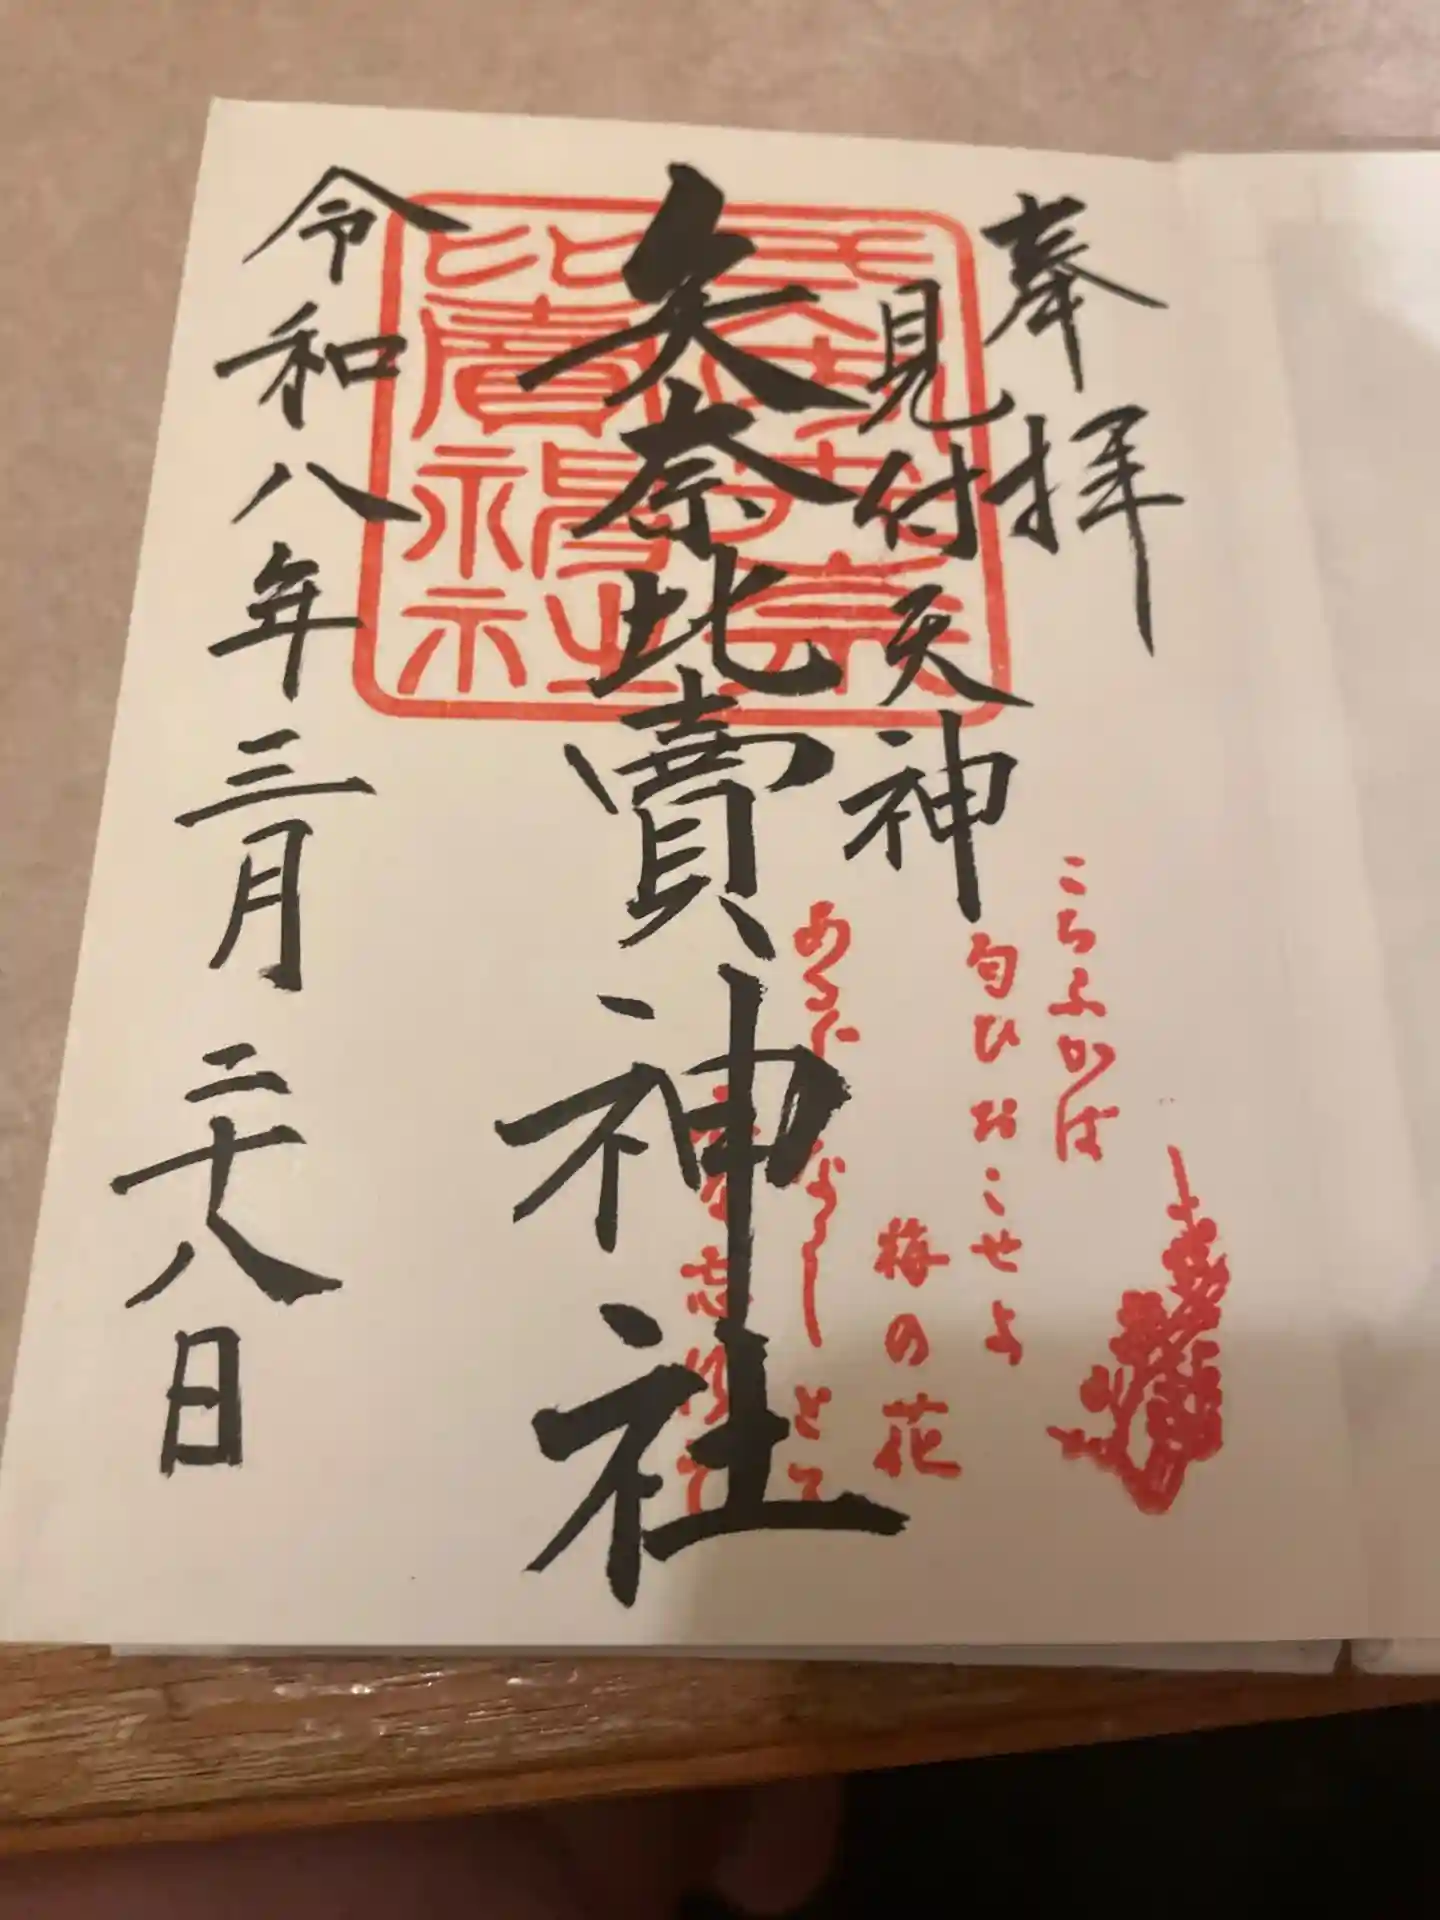 奉拝
見付天神
矢奈比賣神社
令和八年三月二十八日
こちふかば
匂ひおこせよ
梅の花
あるじなしとて
忘れそ